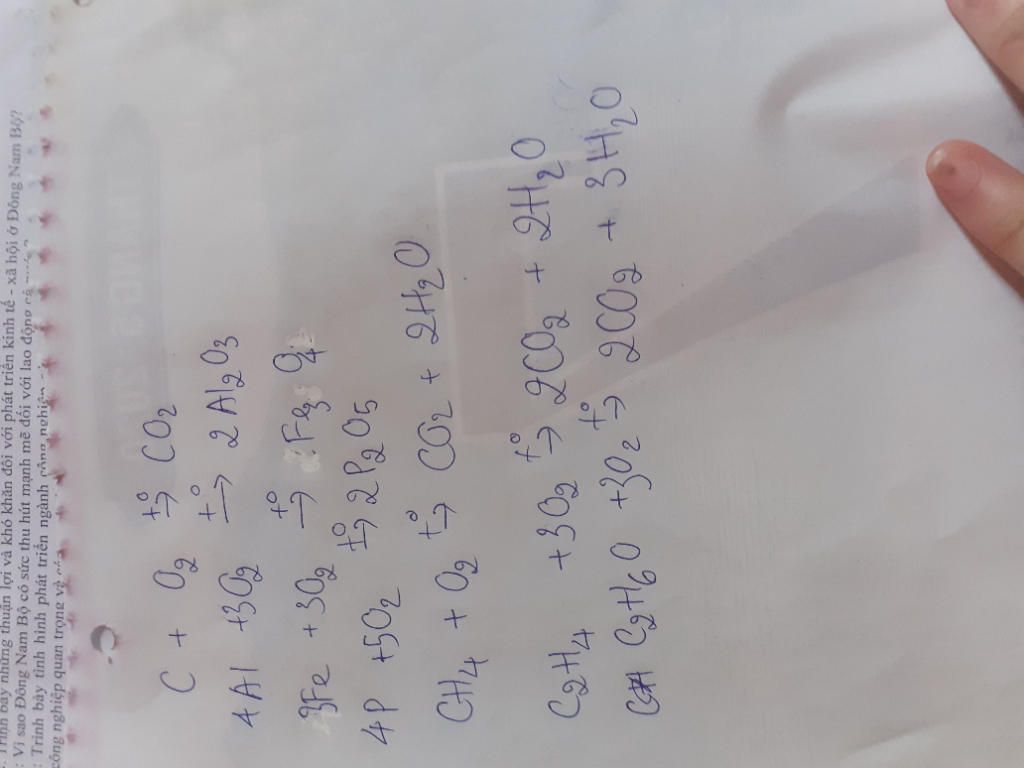 : Trình bày những thuận lợi và khó khăn đối với phát triển kinh tế - xã hội ở Đông Nam Bộ?
: Vì sao Đông Nam Bộ có sức thu hút mạnh mẽ đối với lao động cả
: Trình bày tình hình phát triển ngành công nghiệp
công nghiệp quan trọng về
C + O₂ t°→ CO₂
4Al +3O₂ t°→ 2Al₂O₃
3Fe +3O₂ t°→ Fe₃O₄
4P +5O₂ t°→ 2P₂O₅
CH₄ + O₂ t°→ CO₂ + 2H₂O
C₂H₄ +3O₂ t°→ 2CO₂ + 2H₂O
C₂H₆O +3O₂ t°→ 2CO₂ + 3H₂O